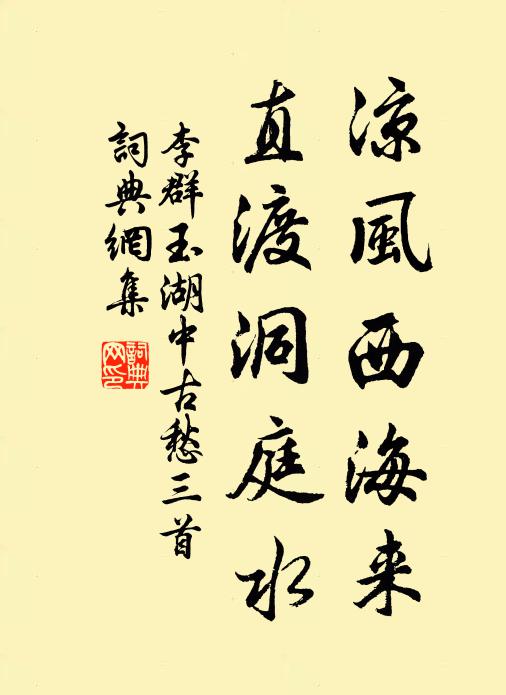 凉風西海来
直渡洞庭水
李群玉湖中古愁三首
詞典網集
詞典網印